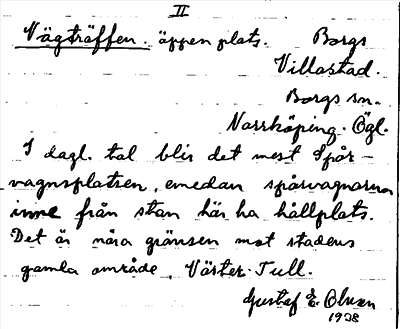 II
Vägträffen. öppen plats. Borgs
Villastad.
Borgs sn.
Norrköping. Ögl.
I dagl. tal blir det mest Spår-
vagnsplatsen, emedan spårvagnarna
inne från stan här ha hållplats.
Det är nära gränsen mot stadens
gamla område, Väster Tull.
Gustaf E. Olsson
1928